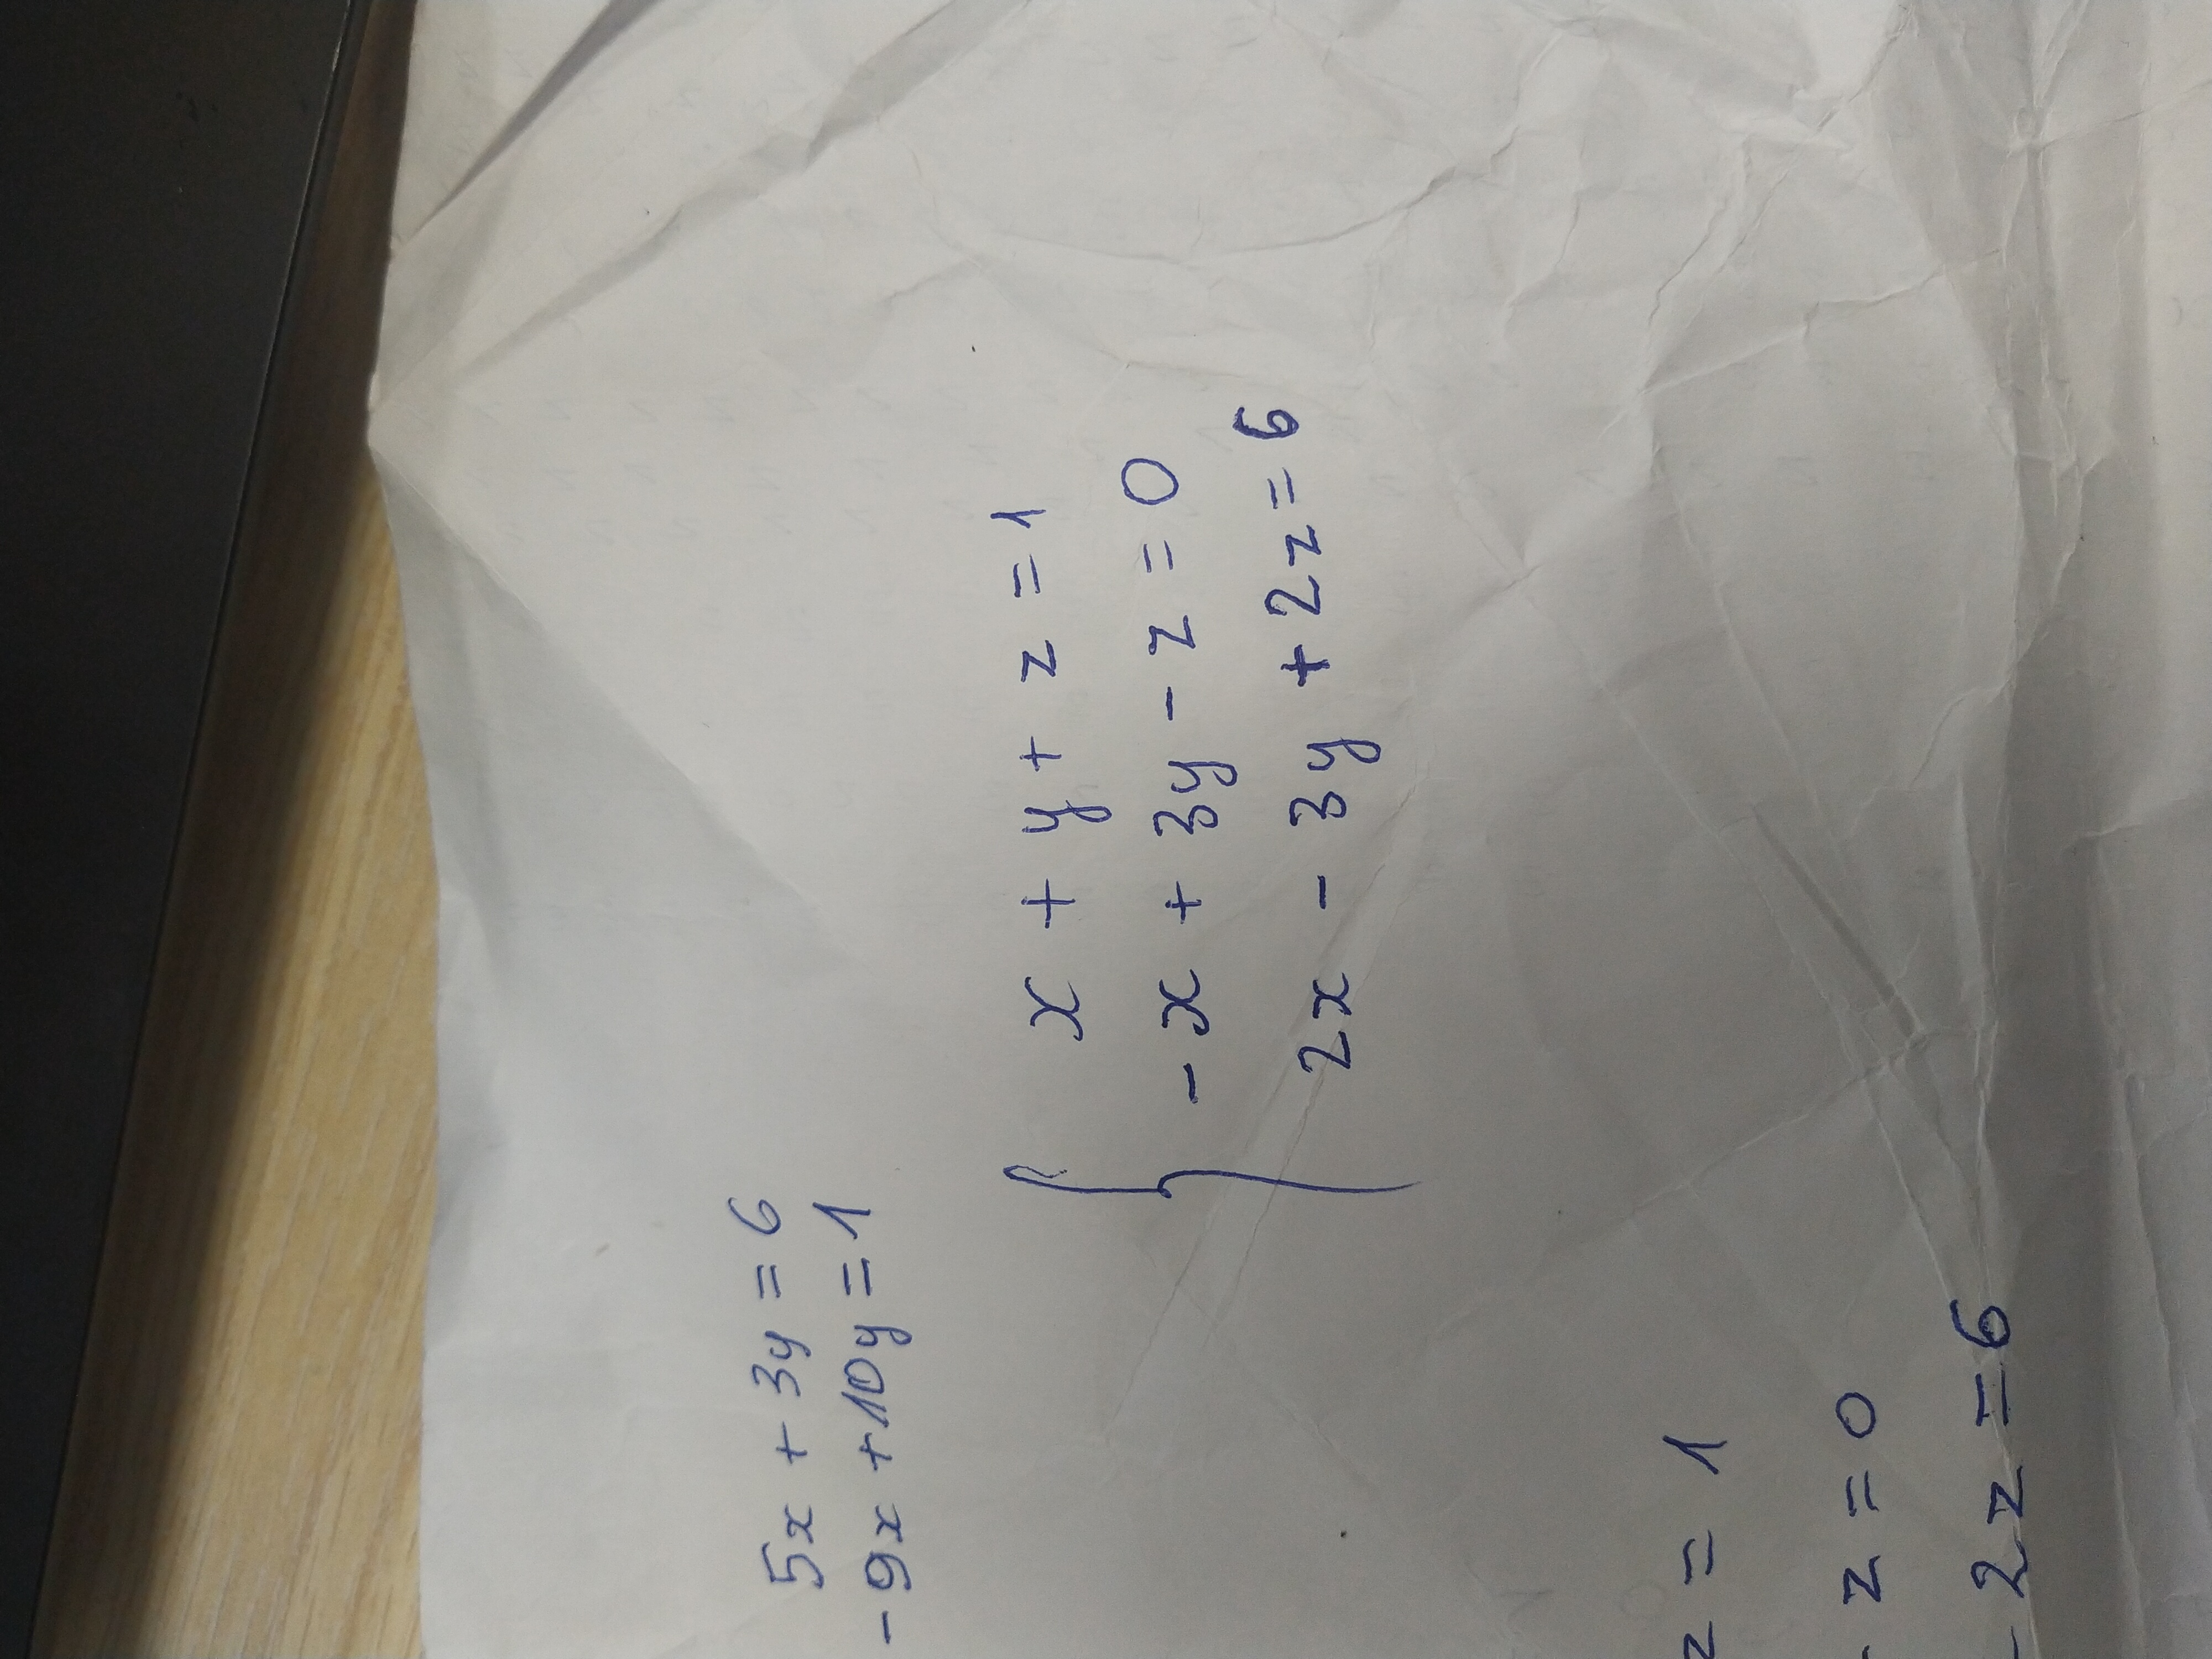 5x + 3y = 6
-9x +10y = 1
x + y + z = 1
-x + 3y - z = 0
2x - 3y + 2z = 6
z = 1
- z = 0
- 2z = 6